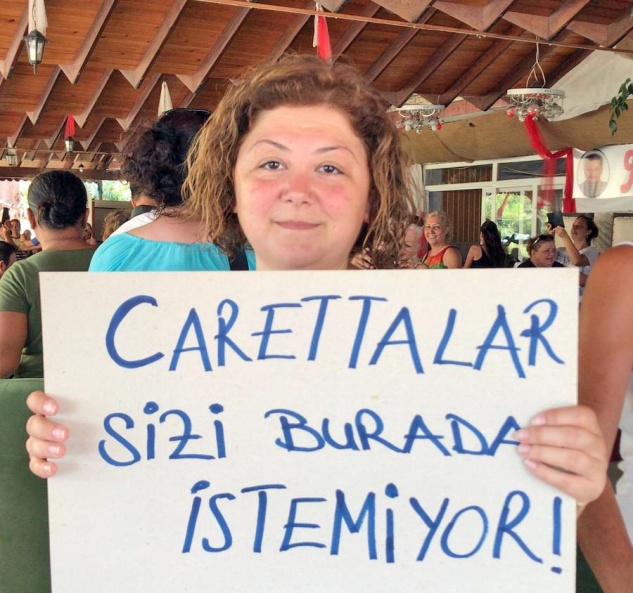 CARETTALAR
SİZİ BURADA
İSTEMİYOR!